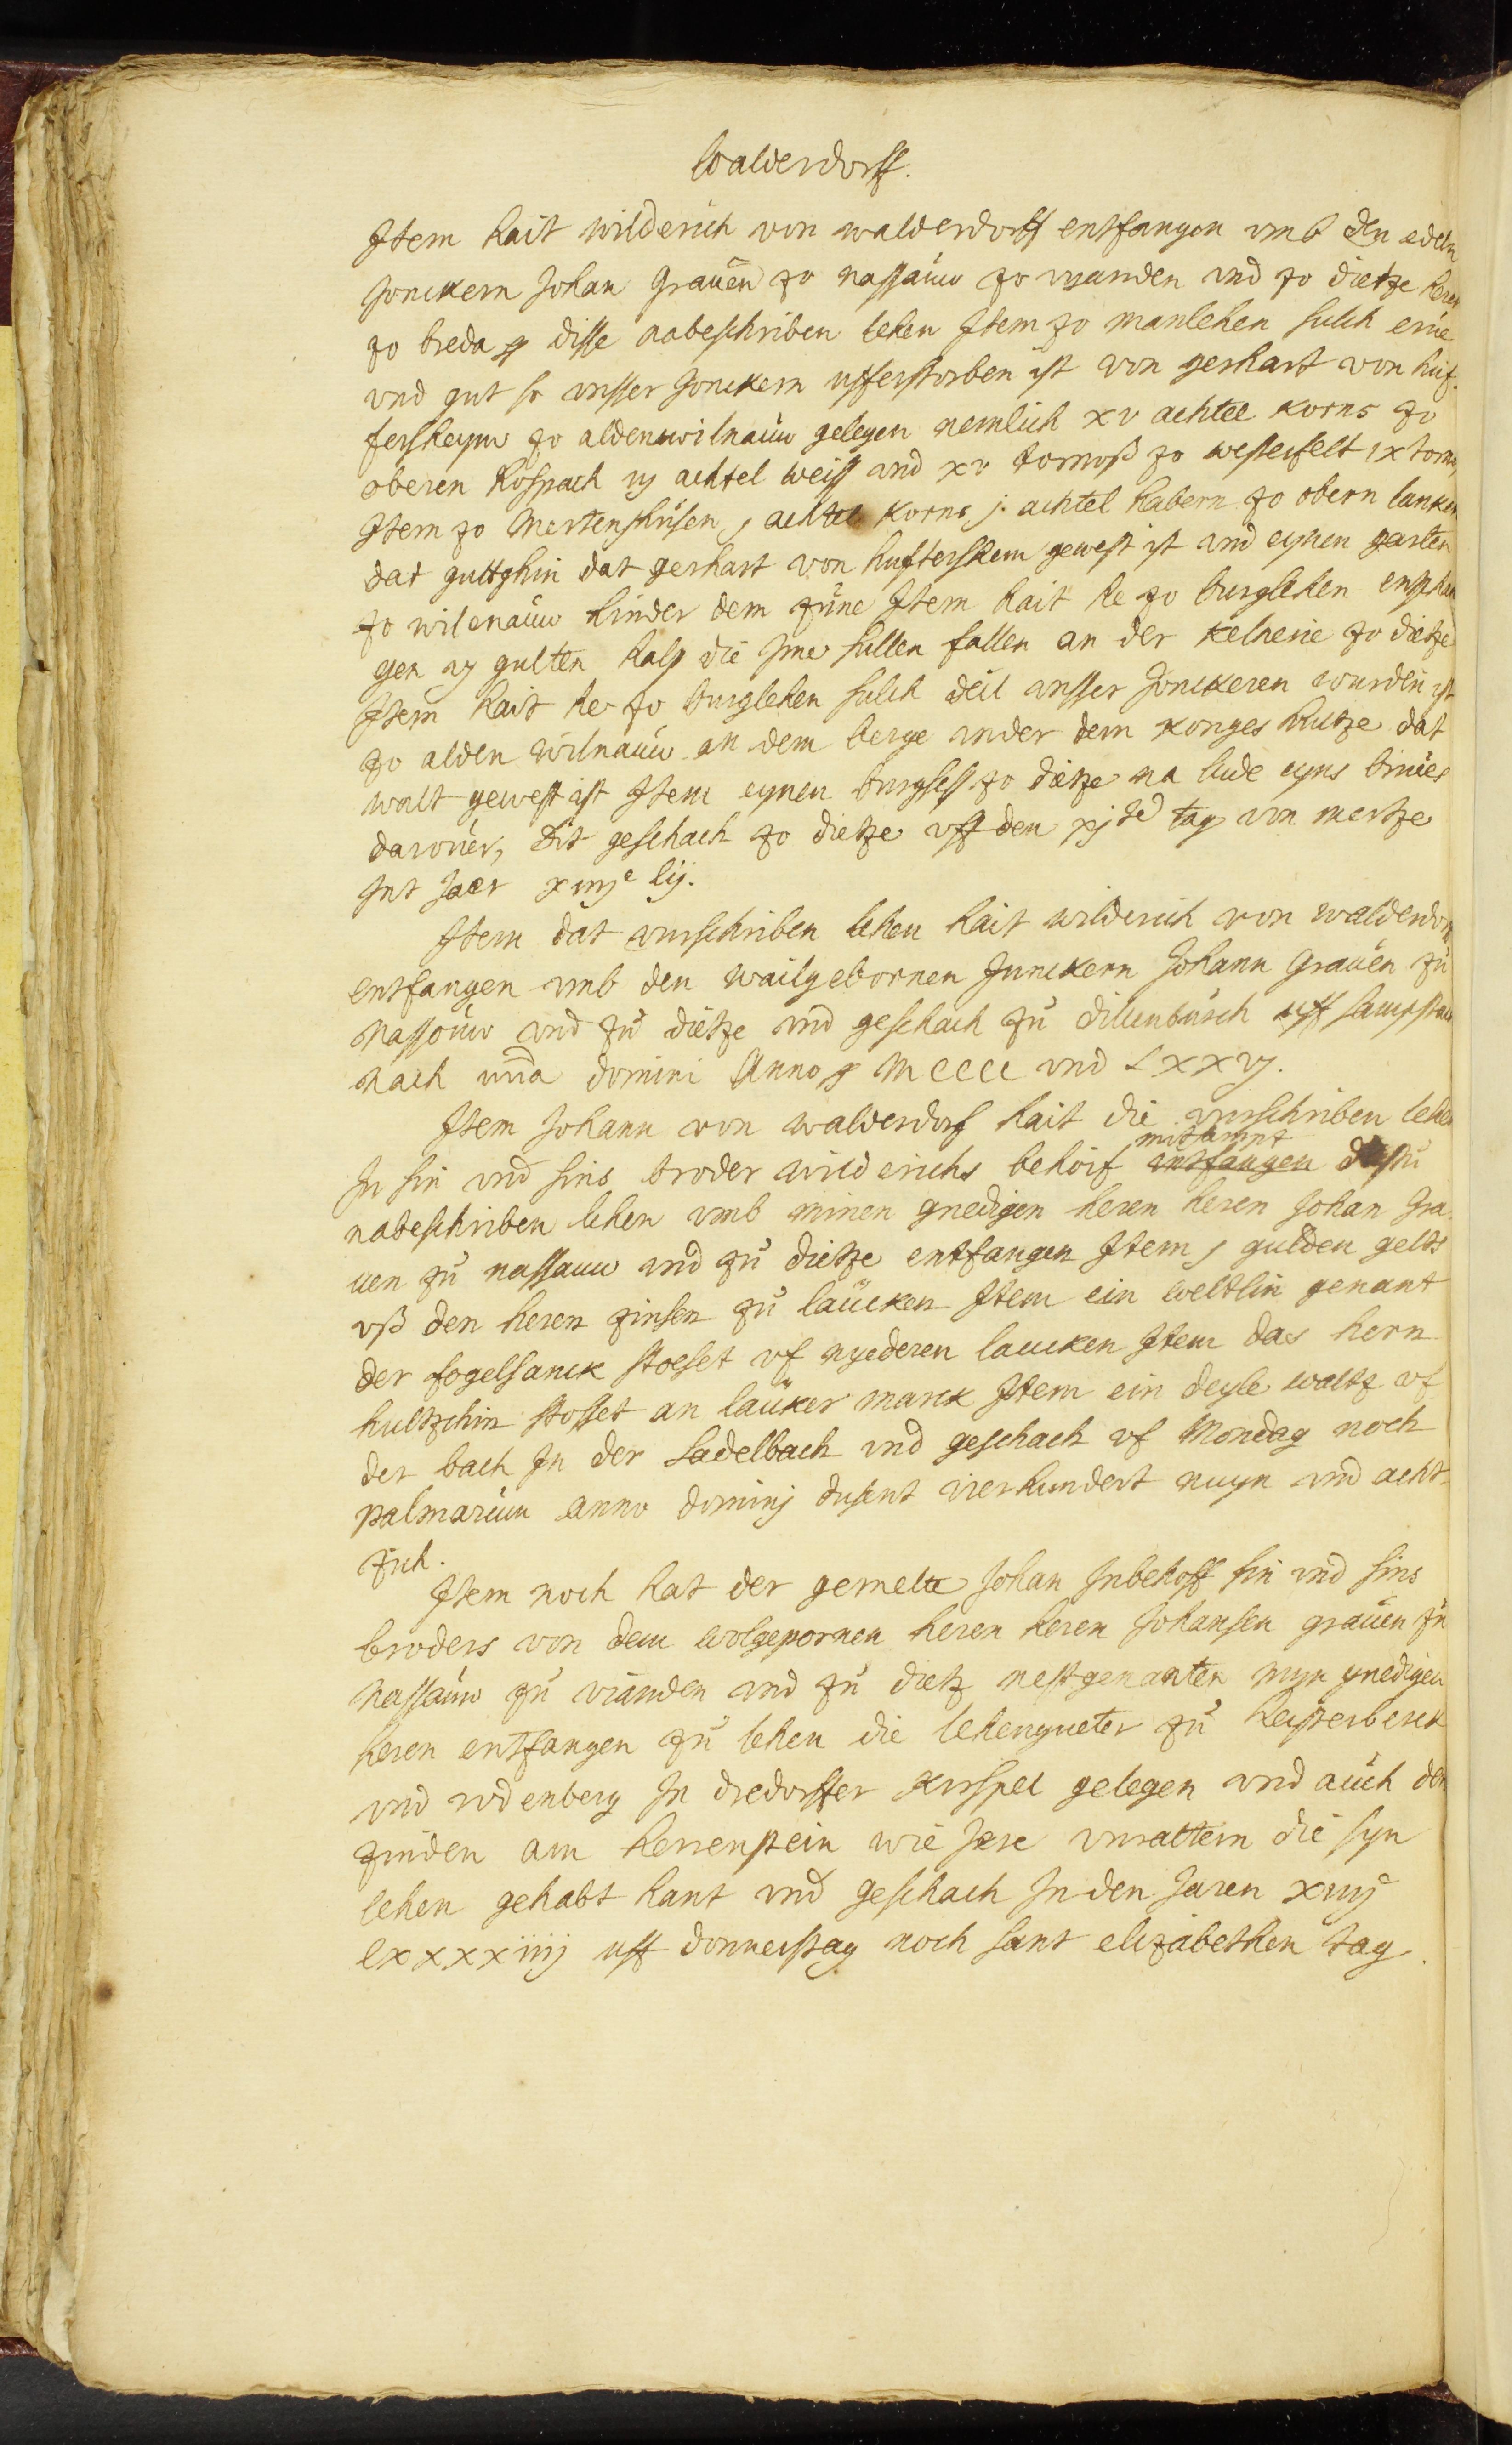 Walderdorff.
Item hait wilderich von walderdorff entfangen vmb den edeln
Jonckern Johan Grauen zo nassauw zo vyanden vnd zo dietze heren
zo breda disse nabeschriben lehen Item zo manlehen sulch erue
vnd gut so vnsser Jonckern vfferstorben ist von gerhart von huf-
fersheym zo aldenwilnauw gelegen nemlich xv achtel korns zo
oberen Rospach vj achtel weiss vnd xv tornoß zo westerfelt ix torn
Item zo Mertenshusen j achtel korns j. achtel habern zo obern lauken
dat guttghin dat gerhart von hufftershem gewest ist vnd eynen garten
zo wilenauw hinder dem zune Item hait he zo burglehen entphan
gen vj gulten halp die Ime sullen fallen an der kelnerie zo dietze
Item hait he zo burglehen sulch deil vnsser Jonckeren wurden ist
zo alden wilnauw an dem berge vnder dem konges holtze dat
walt gewest ist Item eynen burgsess zo dietze na lude eyns briues
daruuer, dit geschach zo dietze vff den xj te tag von mertze
Int Jaer xiiij c lij.
Item dat vurschriben lehen hait wilderich von walderdorf
entfangen vmb den wailgebornen Junckern Johann Grauen zu
Nassouw vnd zu dietze vnd geschach zu dilenburch vff sampstach
nach domini Anno MCCCC vnd LXXVj.
Item Johann von walderdorf hait die vurschriben lehen
In sin vnd sins broder wilderichs behoif mitsampt entfangen
nabeschriben lehen vmb minen gnedigen heren heren Johan Gra
uen zu nassauw vnd zu dietze entfangen Item j gulden gelts
vß den heren zinsen zu laucken Item ein weltlin genant
der fogelsanck stoeset vf nyederen laucken Item das hern
hultzchin stosset an lauker marck Item ein deyle waltz vf
der bach In der Sadelbach vnd geschach vf Mondag noch
palmarum anno dominj dusent vierhundert nuyn vnd acht-
zich.
Item noch hat der gemelte Johan Inbehoff sin vnd sins
broders von dem wolgepornen heren heren Johansen grauen zu
Nassauw zu vianden vnd zu dietz nestgenanten myn gnedigen
heren entfangen zu lehen die lehengueter zu heysterberck
vnd rodenberg In dredorffer kirspel gelegen vnd auch den
zinden am herrenstein wie Jere vuraltern die syn
lehen gehabt hant vnd geschach In den Jaren xiiij c
lxxxxiiij uff donnerstag noch sant elizabethen tag.